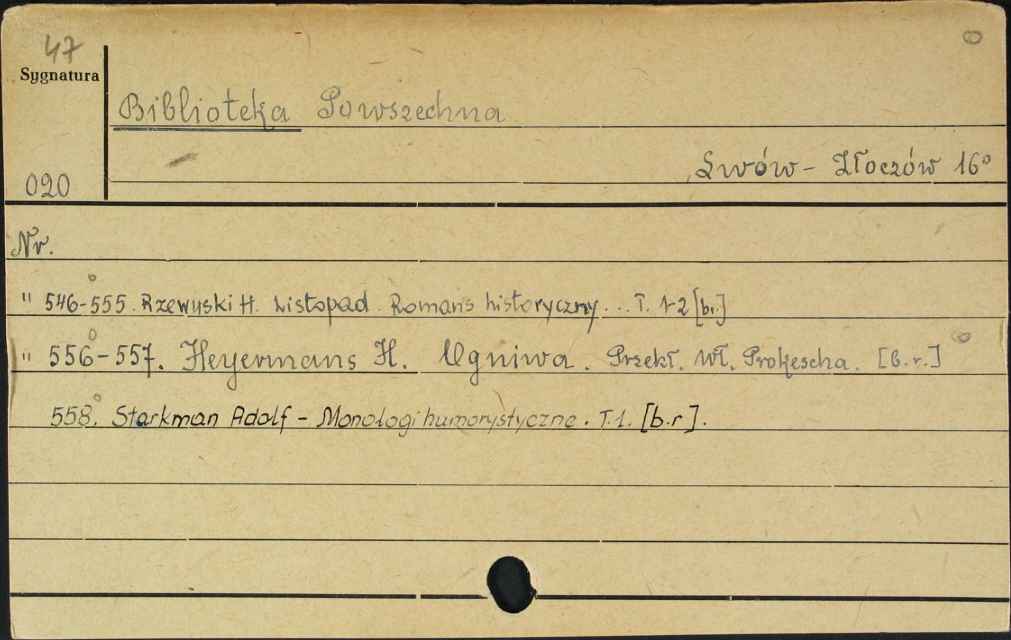 47
Sygnatura
Biblioteka Powszechna
Lwów - Złoczów 16°
020
Nr.
" 546-555. Rzewuski H. Listopad. Romans historyczny... T. 1-2 [br.]
" 556-557. Heyermans H. Ogniwa. Przekł. Wł. Prokescha. [b.r.]
558. Starkman Adolf - Monologi humorystyczne. T.1. [b.r].